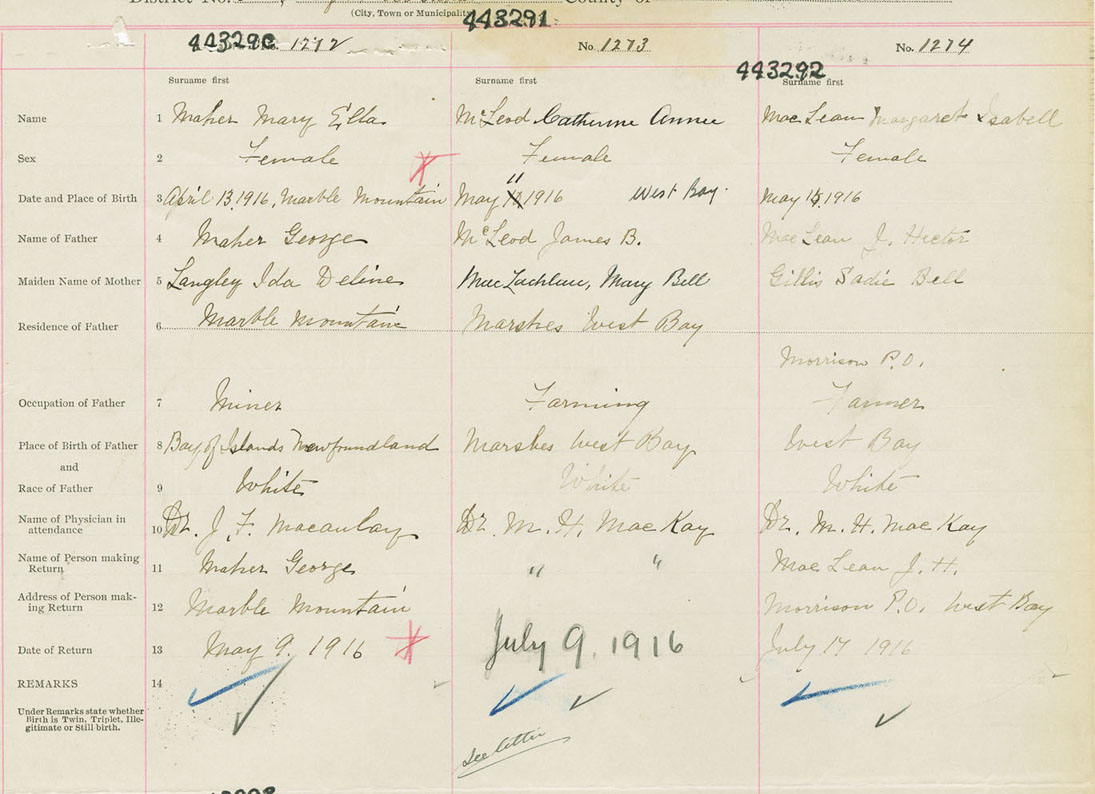 District No. County of
(City, Town or Municipality
443291
443290 No. 1272 No. 1273 No. 1274
443292
Surname first Surname first Surname first
Name 1 Maher Mary Ella McLeod Catherine Annie MacLean Margaret Isabell
Sex 2 Female Female Female
11
Date and Place of Birth 3 April 13, 1916, Marble Mountain May 1916 West Bay. May 15, 1916
Name of Father 4 Maher George McLeod James B. MacLean J. Hector
Maiden Name of Mother 5 Langley Ida Deline MacLachlan, Mary Bell Gillis Sadie Bell
Residence of Father 6 Marble Mountain Marshes West Bay
Morrison P.O.
Occupation of Father 7 Miner Farming Farmer
Place of Birth of Father 8 Bay of Islands Newfoundland Marshes West Bay West Bay
and
Race of Father 9 White White White
Name of Physician in
attendance 10 Dr. J. F. Macaulay Dr. M. H. MacKay Dr. M. H. MacKay
Name of Person making
Return 11 Maher George " " MacLean J. H.
Address of Person mak-
ing Return 12 Marble Mountain Morrison P.O. West Bay
Date of Return 13 May 9, 1916 July 9. 1916 July 17 1916
REMARKS 14
Under Remarks state whether
Birth is Twin, Triplet, Ille-
gitimate or Still-birth.
See letter